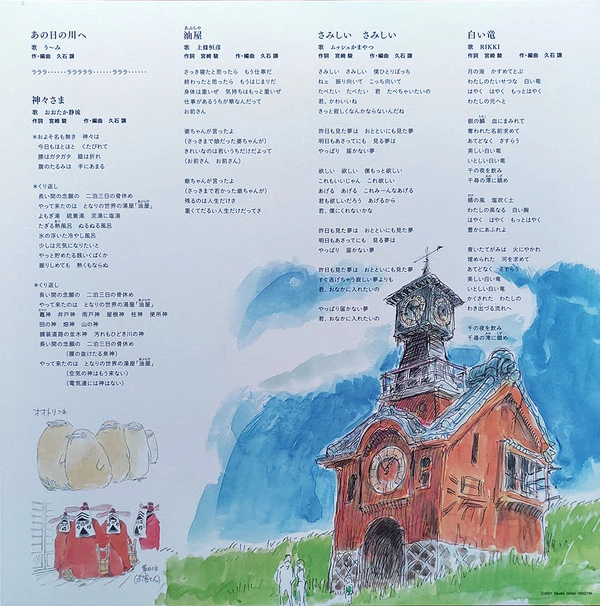 あの日の川へ
歌　う〜み
作・編曲　久石 譲
ラララ‥‥‥ラララララ‥‥‥ラララ‥‥‥
神々さま
歌　おおたか静流
作詞　宮崎 駿　作・編曲　久石 譲
＊およそ名も無き　神々は
今日もほとほと　くたびれて
腰はガタガタ　膝は折れ
腹のたるみは　手にあまる
＊くり返し
長い間の念願の　二泊三日の骨休め
やって来たのは　となりの世界の湯屋「油屋」
よもぎ湯　硫黄湯　泥湯に塩湯
たぎる熱風呂　ぬるぬる風呂
水の浮いた冷やし風呂
少しは元気になりたいと
やっと貯めたる銭いくばくか
握りしめても　熱くもならぬ
＊くり返し
長い間の念願の　二泊三日の骨休め
やって来たのは　となりの世界の湯屋「油屋」
竈神　井戸神　雨戸神　屋根神　柱神　便所神
田の神　畑神　山の神
舗装道路の並木神　汚れもひどき川の神
長い間の念願の　二泊三日の骨休め
（腰の抜けたる泉神）
やって来たのは　となりの世界の湯屋「油屋」
（空気の神はもう来ない）
（電気達には神はない）
オオトリさま
油屋
あぶらや
歌　上條恒彦
作詞　宮崎 駿　作・編曲　久石 譲
さっき寝たと思ったら　もう仕事だ
終わったと思ったら　もうはじまりだ
身体は重いぜ　気持ちはもっと重いぜ
仕事があるうちが華なんだって
お前さん
婆ちゃんが言ったよ
（さっきまで娘だった婆ちゃんが）
きれいなのは若いうちだけだよって
（お前さん　お前さん）
爺ちゃんが言ったよ
（さっきまで若かった爺ちゃんが）
残るのは人生だけさ
重くてだるい人生だけだってさ
さみしい　さみしい
歌　ムッシュかまやつ
作詞　宮崎 駿　作・編曲　久石 譲
さみしい　さみしい　僕ひとりぼっち
ねェ　振り向いて　こっち向いて
たべたい　たべたい　君　たべちゃいたいの
君、かわいいね
きっと寂しくなんかならないんだね
昨日も見た夢は　おとといにも見た夢
明日もあさってにも　見る夢は
やっぱり　届かない夢
欲しい　欲しい　僕もっと欲しい
これもいいじゃん　これ欲しい
あげる　あげる　これみ〜んなあげる
君も欲しいだろう　あげるから
君、僕にくれないかな
昨日も見た夢は　おとといにも見た夢
明日もあさってにも　見る夢は
やっぱり　届かない夢
昨日も見た夢は　おとといにも見た夢
すぐ逃げちゃう寂しい夢よりも
君、おなかに入れたいの
やっぱり届かない夢
君、おなかに入れたいの
白い竜
歌　RIKKI
作詞　宮崎 駿　作・編曲　久石 譲
月の海　かすめてとぶ
わたしのたいせつな　白い竜
はやく　はやく　もっとはやく
わたしの元へと
銀の鱗　血にまみれて
奪われた名前求めて
あてどなく　さすらう
美しい白い竜
いとしい白い竜
千の夜を飲み
千尋の澪に鎮め
鰭の風　塩吹く土
わたしの高なる　白い胸
はやく　はやく　もっとはやく
豊かにあふれよ
青いたてがみは　火にやかれ
埋められた　河を求めて
あてどなく　さすらう
美しい白い竜
いとしい白い竜
かくされた　わたしの
わき出づる流れへ
千の夜を飲み
千尋の澪に鎮め